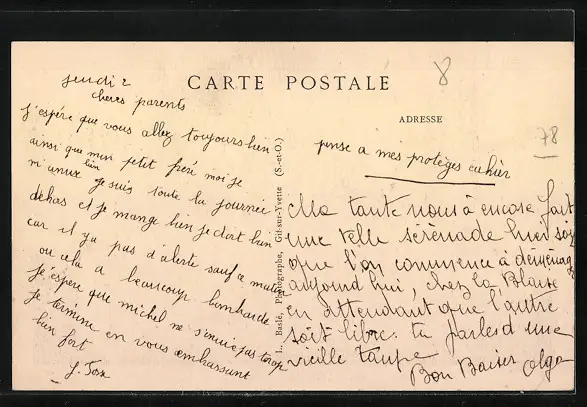 jeudi 2
CARTE POSTALE
8
chers parents
ADRESSE
78
j'espére que vous allez toujours bien
ainsi que mon petit frere moi je
m'amuse bien je suis toute la journée
dehas et je mange bien je dort bien
car il ya pas d'alerte sauf ce matin
ou cela a beaucoup bombardé
j'espere que michel ne s'ennuie pas trop
je termine en vous embrassant
bien fort
L. Baslé, Photographe, Gif-sur-Yvette (S.-et-O.)
pense a mes protèges cahier
Ma tante nous à encore fait
une telle sérénade hier soir
que l'on commence à déménag
aujourd'hui, chez la Blanse
en attendant que l'autre
soit libre. tu parles d'une
vieille taupe
Bon Baiser Olga